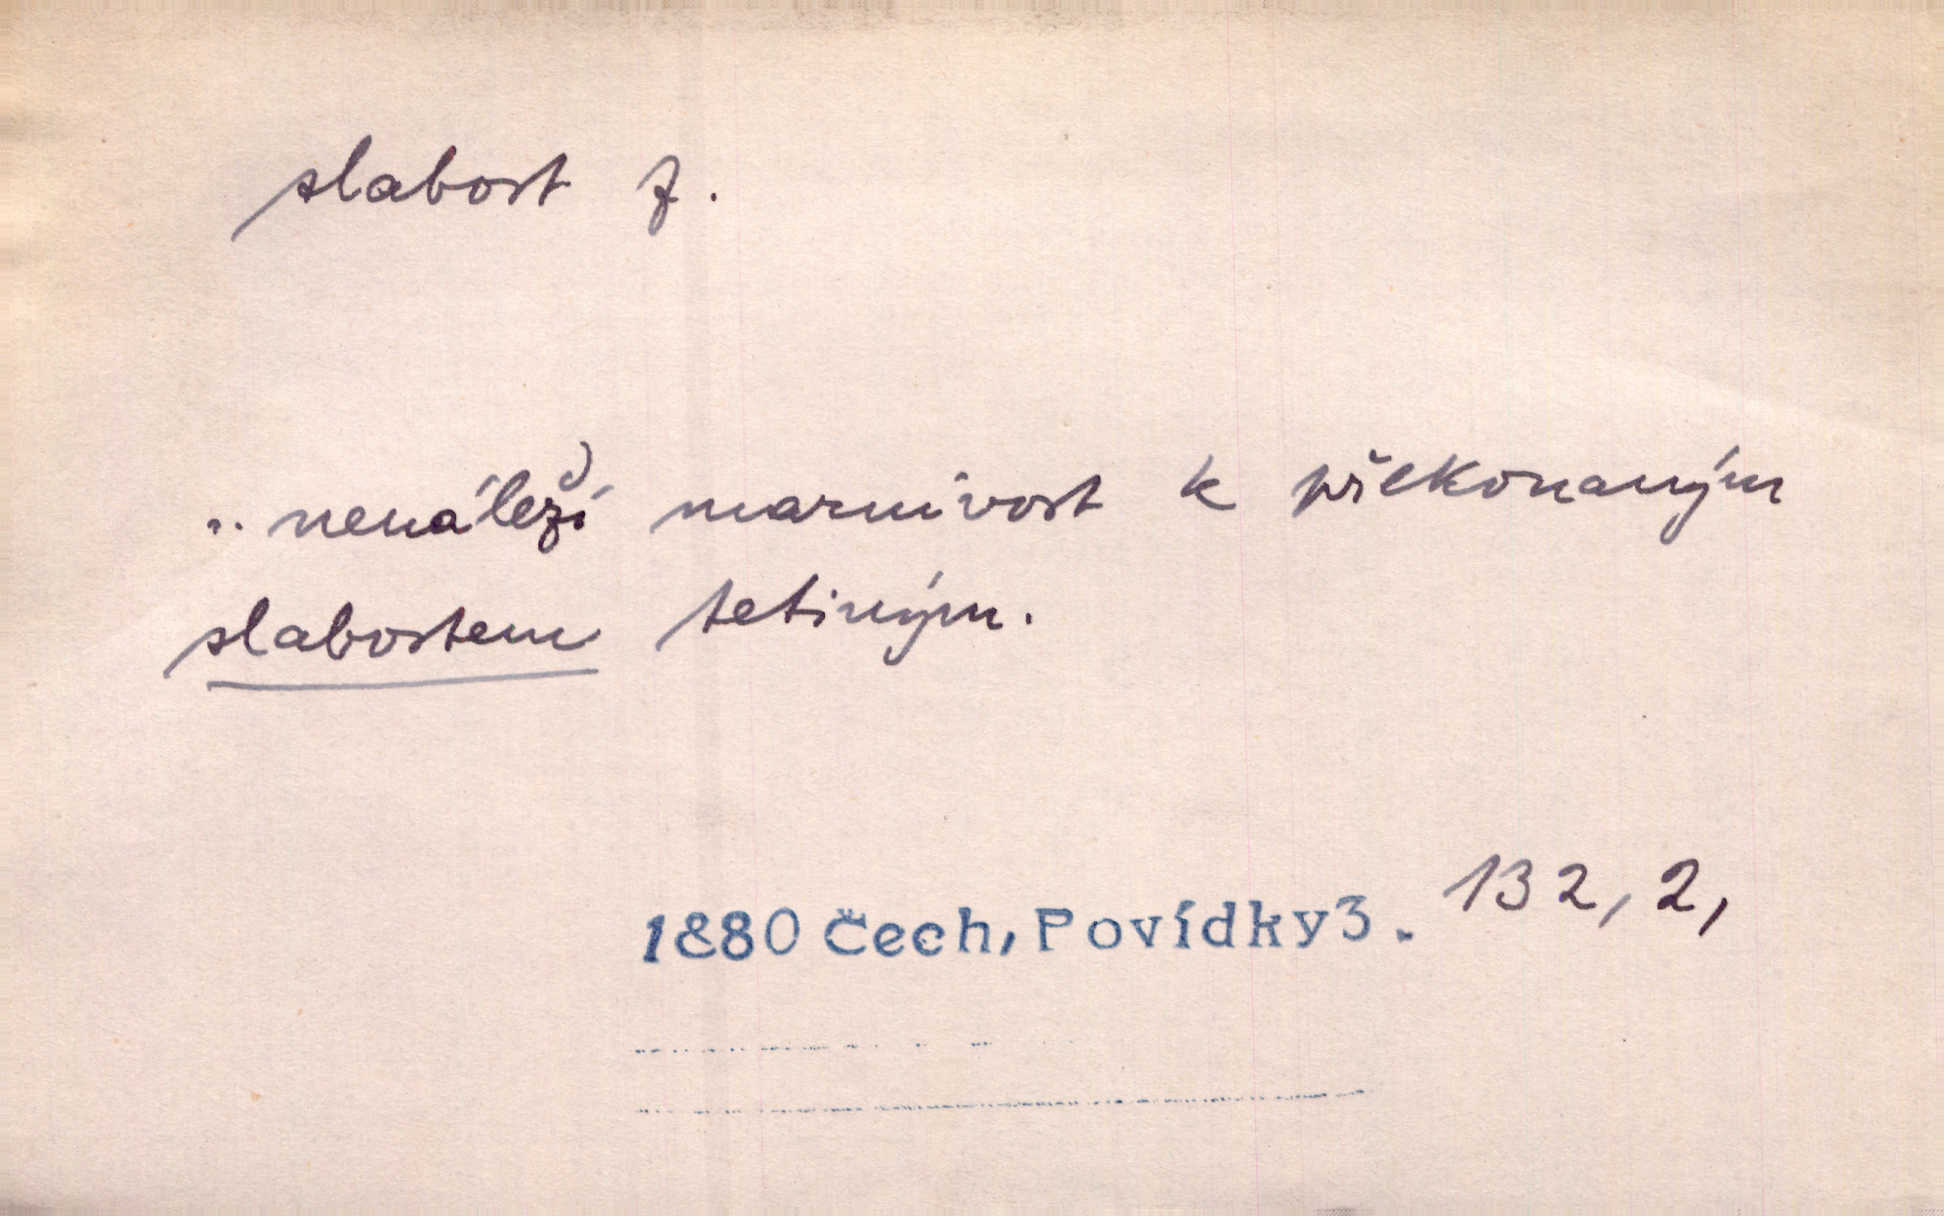 slabost f.
.. nenáleží marnivost k překonaným
slabostem tetiným.
1880 Čech, Povídky3. 132, 2,